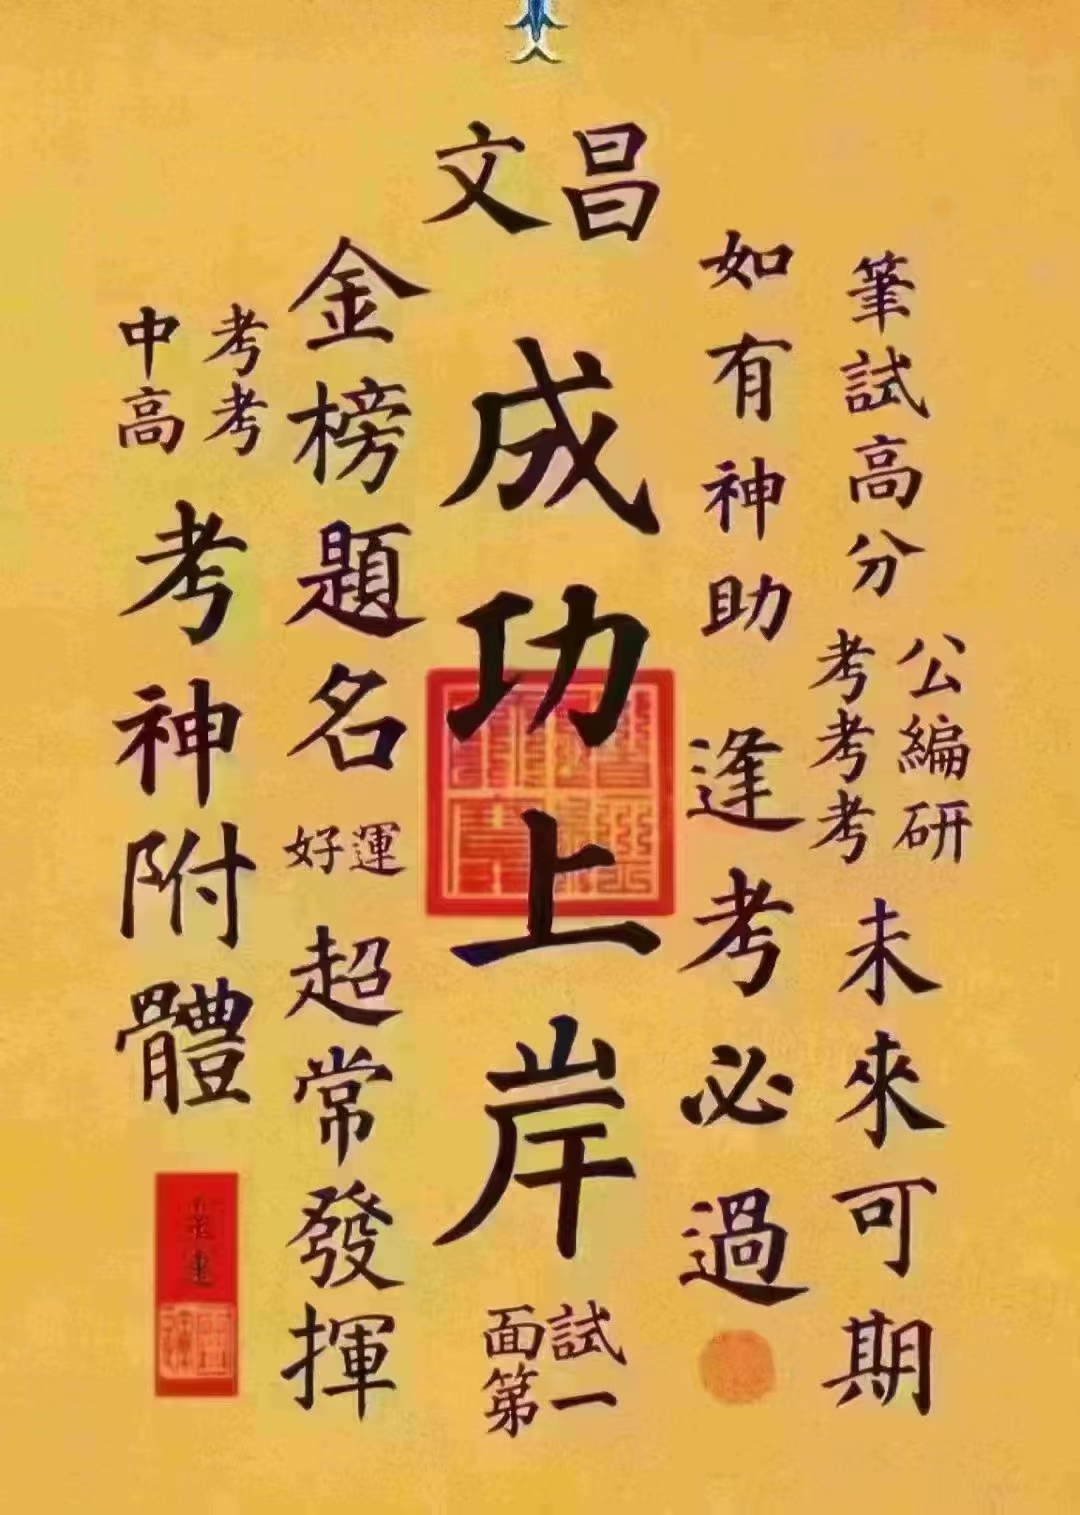 文昌
筆試高分
公考
編考
研考
未來可期
如有神助
逢考必過
成功上岸
面試
第一
金榜題名
好運
超常發揮
中考
高考
考神附體